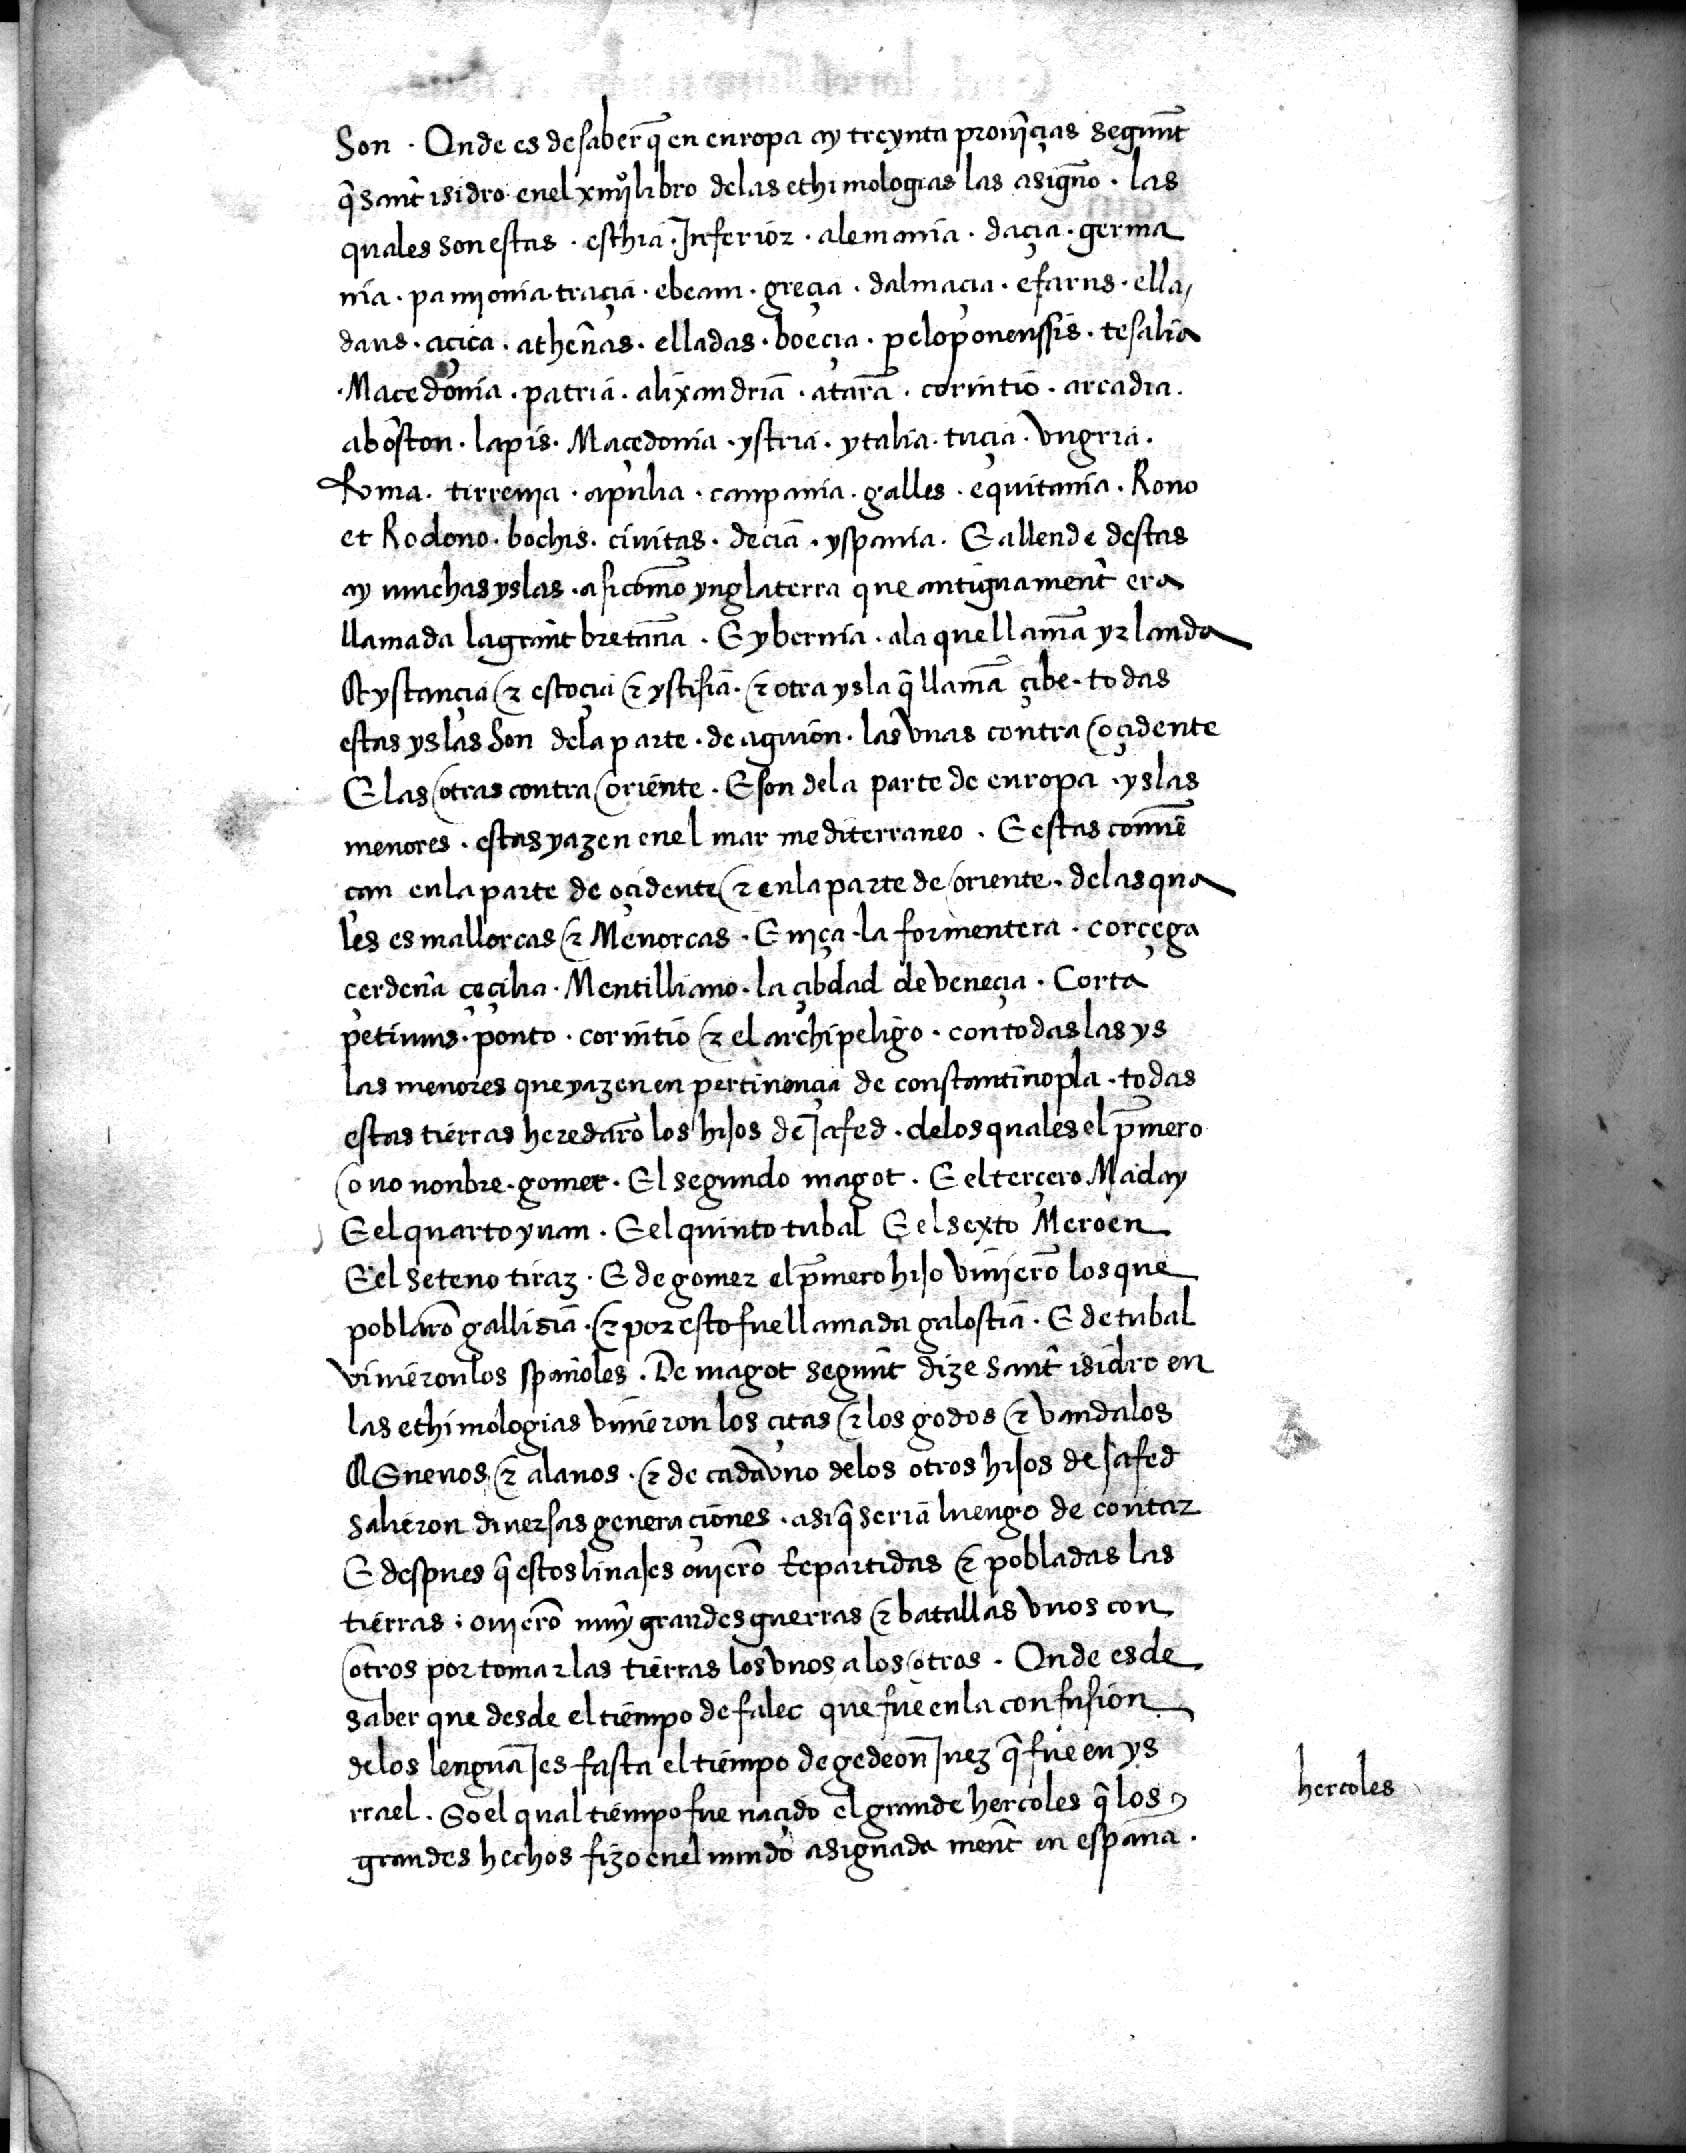 Son · Onde es de saber q̃ en europa ay treynta prouĩçias segunt̃
q̃ sant̃ isidro enel xiiijº libro delas ethimologias las asigno · las
quales son estas · esthia · Inferior · alemania · daçia · germa
nia · panonia traçia · ebeam · greçia · dalmaçia · efarus · ella
daus · açica · athen̄as · elladas · boeçia · peloponenssis · tesalia
· Macedonia · patria · alixandria · atara · corintio · arcadia ·
aboston · lapis · Maçedonia · ystria · ytalia · tuçia · vngria ·
Roma · tirrenia · apulia · canpania · galles · equitania · Rono
et Rodono · bochis · ciuitas · decia · yspania · E allende destas
ay muchas yslas · asi com̃o ynglaterra que antiguament̃ era
llamada la grant̃ bretan̄a · E ybernia · ala que llamã yrlanda
A ystançia & estoçia & ystisia · & otra ysla q̃ llamã çibe · todas
estas yslas son dela parte · de aguion · las vnas contra oçidente
E las otras contra oriente · E son dela parte de europa · yslas
menores · estas yazen enel mar mediterraneo · E estas comiẽ
çan enla parte de oçidente & enla parte de oriente · delas qua
les es mallorcas & Menorcas · E niça · la formentera · corçega
çerden̄a çeçilia · Mentilliano · la çibdad de veneçia · Corta
petinus · ponto · corintio & el archipeligo · con todas las ys
las menores que yazen en pertinençia de constantinopla · todas
estas tierras heredarõ los hijos de Jafed · delos quales el p̃mero
ouo nonbre · gomer · El segundo magot · E el terçero Maday
E el quarto yuan · E el quinto tubal E el sexto Meroen
E el seteno tiraz · E de gomez el p̃mero hijo vinierõ los que
poblarõ gallisia · & por esto fue llamada galostia · E de tubal
vinieron los span̄oles · De magot segunt̃ dize sant̃ isidro en
las ethimologias vinieron los çitas & los godos & vandalos
A Sueuos & alanos · & de cada vno delos otros hijos de Jafed
salieron diuersas generaçiones · asi q̃ seria luengo de contar
E despues q̃ estos linajes ouierõ Repartidas & pobladas las
tierras · ouierõ muy grandes guerras & batallas vnos con
otros por tomar las tierras los vnos alos otros · Onde es de
saber que desde el tiempo de falec que fue en la confusion
delos lenguajes fasta el tiempo de gedeon Juez q̃ fue en ys
rrael · So el qual tiempo fue naçido el grande hercoles q̃ los
grandes hechos fizo enel mundo asignada ment̃ en espan̄a ·
hercoles